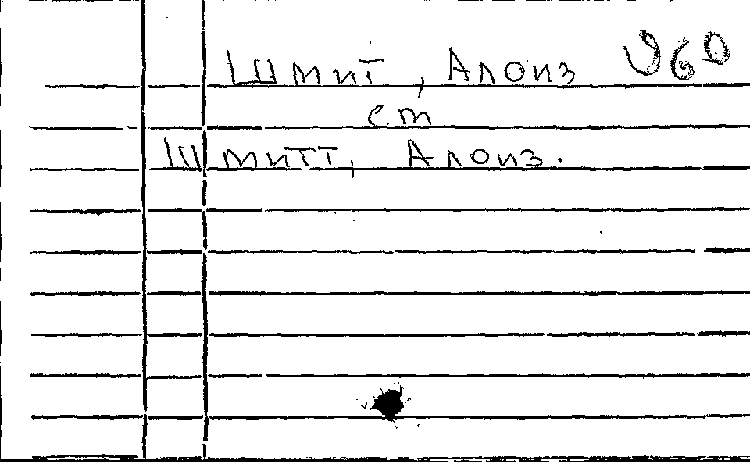 Шмит, Алоиз
ст
Шмитт, Алоиз.